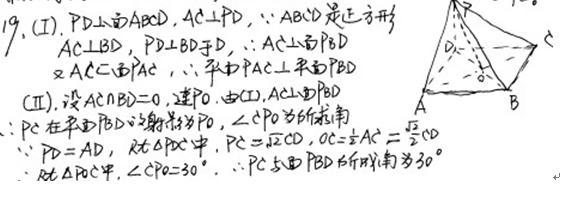 19. (I). PD⊥面ABCD, AC⊥PD, ∵ ABCD是正方形
AC⊥BD, PD⊥BD于D, ∴ AC⊥面PBD
又AC⊂面PAC, ∴ 平面PAC⊥平面PBD
(II). 设AC∩BD=O, 连PO. 由(I), AC⊥面PBD
∴ PC在平面PBD的射影为PO, ∠CPO为所求角
∵ PD=AD, Rt△PDC中, PC=√2CD, OC=½AC=√2/2CD
∴ Rt△POC中, ∠CPO=30°. ∴ PC与面PBD所成角为30°
P
D
C
O
A
B